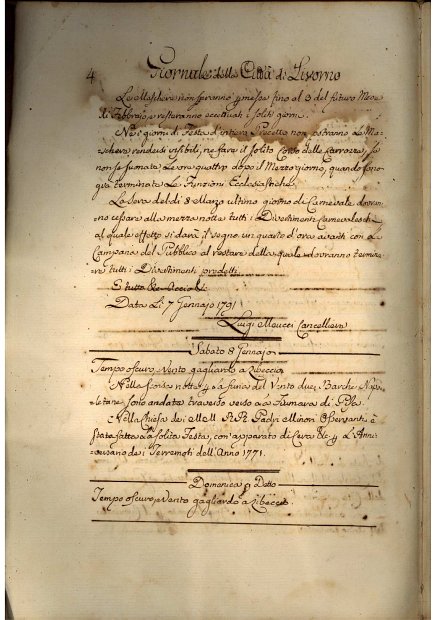 4 Giornale della Città di Livorno
Le Maschere non saranno permesse fino al 3 del futuro Mese
di Febbraio e resteranno eccettuati i soliti giorni.
Nei giorni di Festa d'intiero Precetto non potranno le Ma-
schere rendersi visibili, ne fare il solito Corso delle Carrozze, se
non se suonate le ore quattro dopo il Mezzogiorno, quando sono
già terminate le Funzioni Ecclesiastiche.
La Sera del dì 8 Marzo ultimo giorno di Carnevale dovran-
no cessare alla mezza notte tutti i Divertimenti Carnevaleschi,
al quale effetto si darà il segno un quarto d'ora avanti con la
Campana del Pubblico al restare della quale dovranno termina-
re tutti i Divertimenti predetti.
E tutto &c.
Data Li 7 Gennajo 1791
Luigi Meucci Cancelliere
Sabato 8 Gennajo
Tempo oscuro, Vento gagliardo a Libeccio.
Nella scorsa notte p. la furia del Vento due Barche Napo-
letane sono andate traverso verso la Fiumara di Pisa
Nella Chiesa dei MM. RR. Padri Minori Osservanti è
stata fatta la solita Festa, con apparato di Cera &c. p. L'Anni-
versario dei Terremoti dell'Anno 1771.
Domenica 9 Detto
Tempo oscuro, Vento gagliardo a Libeccio.